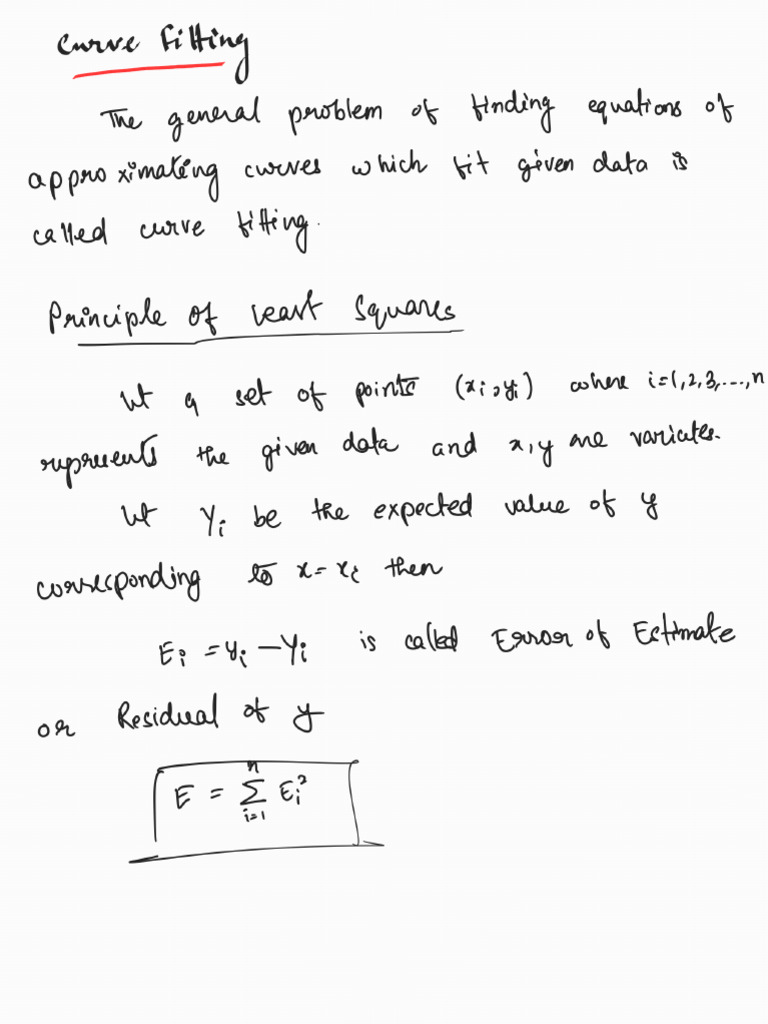 Curve Fitting
The general problem of finding equations of
approximating curves which fit given data is
called curve fitting.
Principle of Least Squares
Let a set of points (xᵢ, yᵢ) where i=1,2,3,...,n
represents the given data and x,y are variates.
Let Yᵢ be the expected value of y
corresponding to x = xᵢ then
Eᵢ = yᵢ − Yᵢ is called Error of Estimate
or Residual of y
E = ∑ᵢ₌₁ⁿ Eᵢ²